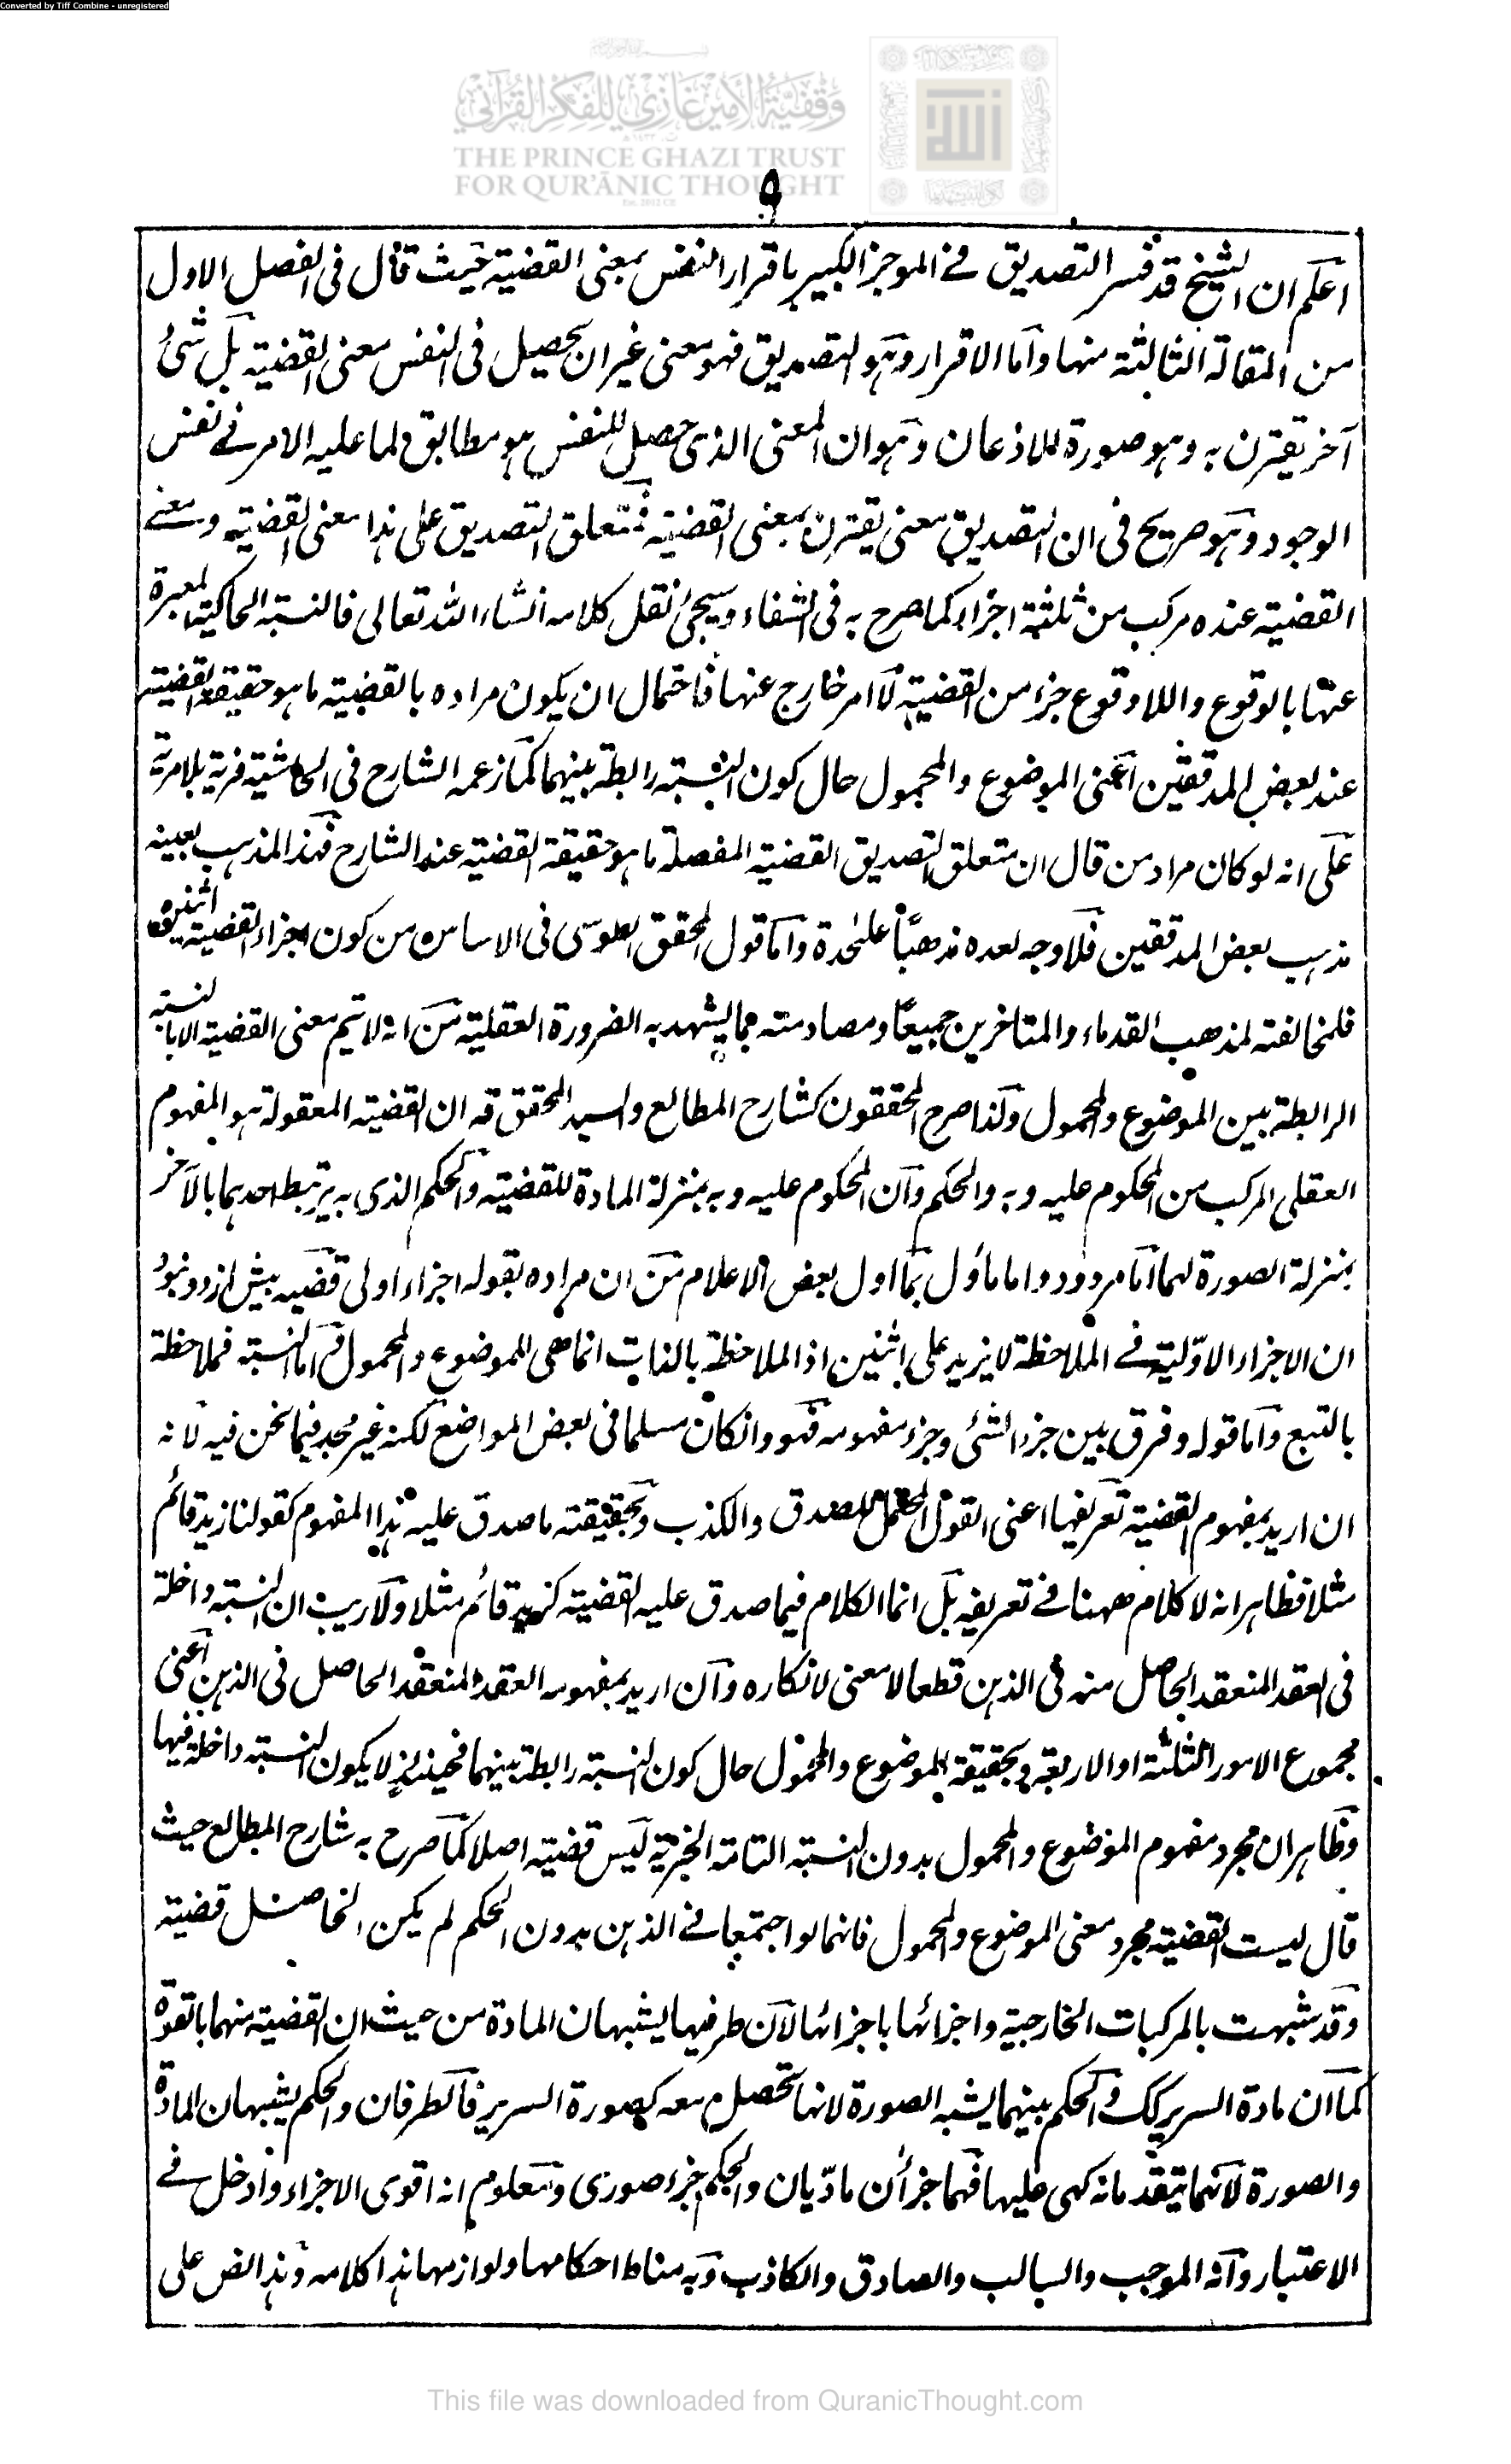 Converted by Tiff Combine - unregistered
وقفية الأمير غازي للفكر القرآني
THE PRINCE GHAZI TRUST
FOR QUR'ĀNIC THOUGHT
Est. 2012 CE
٩
اعلم ان الشيخ قد فسر التصديق في الموجز الكبير باقرار النفس بمعنى القضية حيث قال في الفصل الاول
من المقالة الثالثة منها واما الاقرار وهو التصديق فهو معنى غير ان يحصل في النفس معنى القضية بل شئ
آخر تقترن به وهو صورة للاذعان وهو ان المعنى الذى حصل للنفس هو مطابق لما عليه الامر في نفس
الوجود وهو صريح في ان التصديق معنى يقترن بمعنى القضية فمتعلق التصديق على هذا معنى القضية ومعنى
القضية عنده مركب من ثلثة اجزاء كما صرح به في الشفاء وسيجئ نقل كلامه انشاء الله تعالى فالنسبة الحاكية المعبرة
عنها بالوقوع واللاوقوع جزء من القضية لا امر خارج عنها فاحتمال ان يكون مراده بالقضية ما هو حقيقة القضية
عند بعض المدققين اعنى الموضوع والمحمول حال كون النسبة رابطة بينهما كما زعمه الشارح في الحاشية فرية بلا مرية
على انه لو كان مراد من قال ان متعلق التصديق القضية المفصلة ما هو حقيقة القضية عند الشارح فهذا المذهب بعينه
مذهب بعض المدققين فلا وجه لعده مذهبًا علىحدة واما قول المحقق الطوسى في الاساس من كون اجزاء القضية اثنين
فلمخالفته لمذهب القدماء والمتاخرين جميعًا ومصادمته مما يشهد به الضرورة العقلية من انه لا يتم معنى القضية الا بالنسبة
الرابطة بين الموضوع والمحمول وكذا صرح المحققون كشارح المطالع والسيد المحقق قه ان القضية المعقولة هو المفهوم
العقلى المركب من المحكوم عليه وبه والحكم وان المحكوم عليه وبه بمنزلة المادة للقضية والحكم الذى به يرتبط احدهما بالآخر
بمنزلة الصورة لهما اما مردود واما مأول بما اول بعض الاعلام من ان مراده بقوله اجزاء اولى قضيه بيش از دو نبود
ان الاجزاء الاوّلية في الملاحظة لا يزيد على اثنين اذ الملاحظة بالذات انما هى للموضوع والمحمول واما النسبة فملاحظة
بالتبع واما قوله وفرق بين جزء الشئ وجزء مفهومه فهو وانكان مسلما في بعض المواضع لكنه غير مجد فيما نحن فيه لانه
ان اريد بمفهوم القضية تعريفها اعنى القول المحتمل للصدق والكذب وبحقيقته ما صدق عليه هذا المفهوم كقولنا زيد قائم
مثلا فظاهر انه لا كلام ههنا في تعريفه بل انما الكلام فيما صدق عليه القضية كزيد قائم مثلا ولا ريب ان النسبة داخلة
في العقد المنعقد الحاصل منه في الذهن قطعا لا معنى لانكاره وان اريد بمفهومه العقد المنعقد الحاصل في الذهن اعنى
مجموع الامور الثلثة او الاربعة وبحقيقة الموضوع والمحمول حال كون النسبة رابطة بينهما فحينئذ لا يكون النسبة داخلة فيها
وظاهر ان مجرد مفهوم الموضوع والمحمول بدون النسبة التامة الخبرية ليس قضية اصلا كما صرح به شارح المطالع حيث
قال ليست القضية مجرد معنى الموضوع والمحمول فانهما لو اجتمعا في الذهن بدون الحكم لم يكن الحاصل قضية
وقد شبهت بالمركبات الخارجية واجزائها باجزائها لان طرفيها يشبهان المادة من حيث ان القضية منهما بالقوة
كما ان مادة السرير كك والحكم بينهما يشبه الصورة لانها تحصل معه كصورة السرير فالطرفان والحكم يشبهان المادة
والصورة لانهما يتقدمانه كهى عليها فهما جزأن مادّيان والحكم جزء صورى ومعلوم انه اقوى الاجزاء وادخل في
الاعتبار وانه الموجب والسالب والصادق والكاذب وبه مناط احكامها ولوازمها هذا كلامه وهذا نص على
This file was downloaded from QuranicThought.com